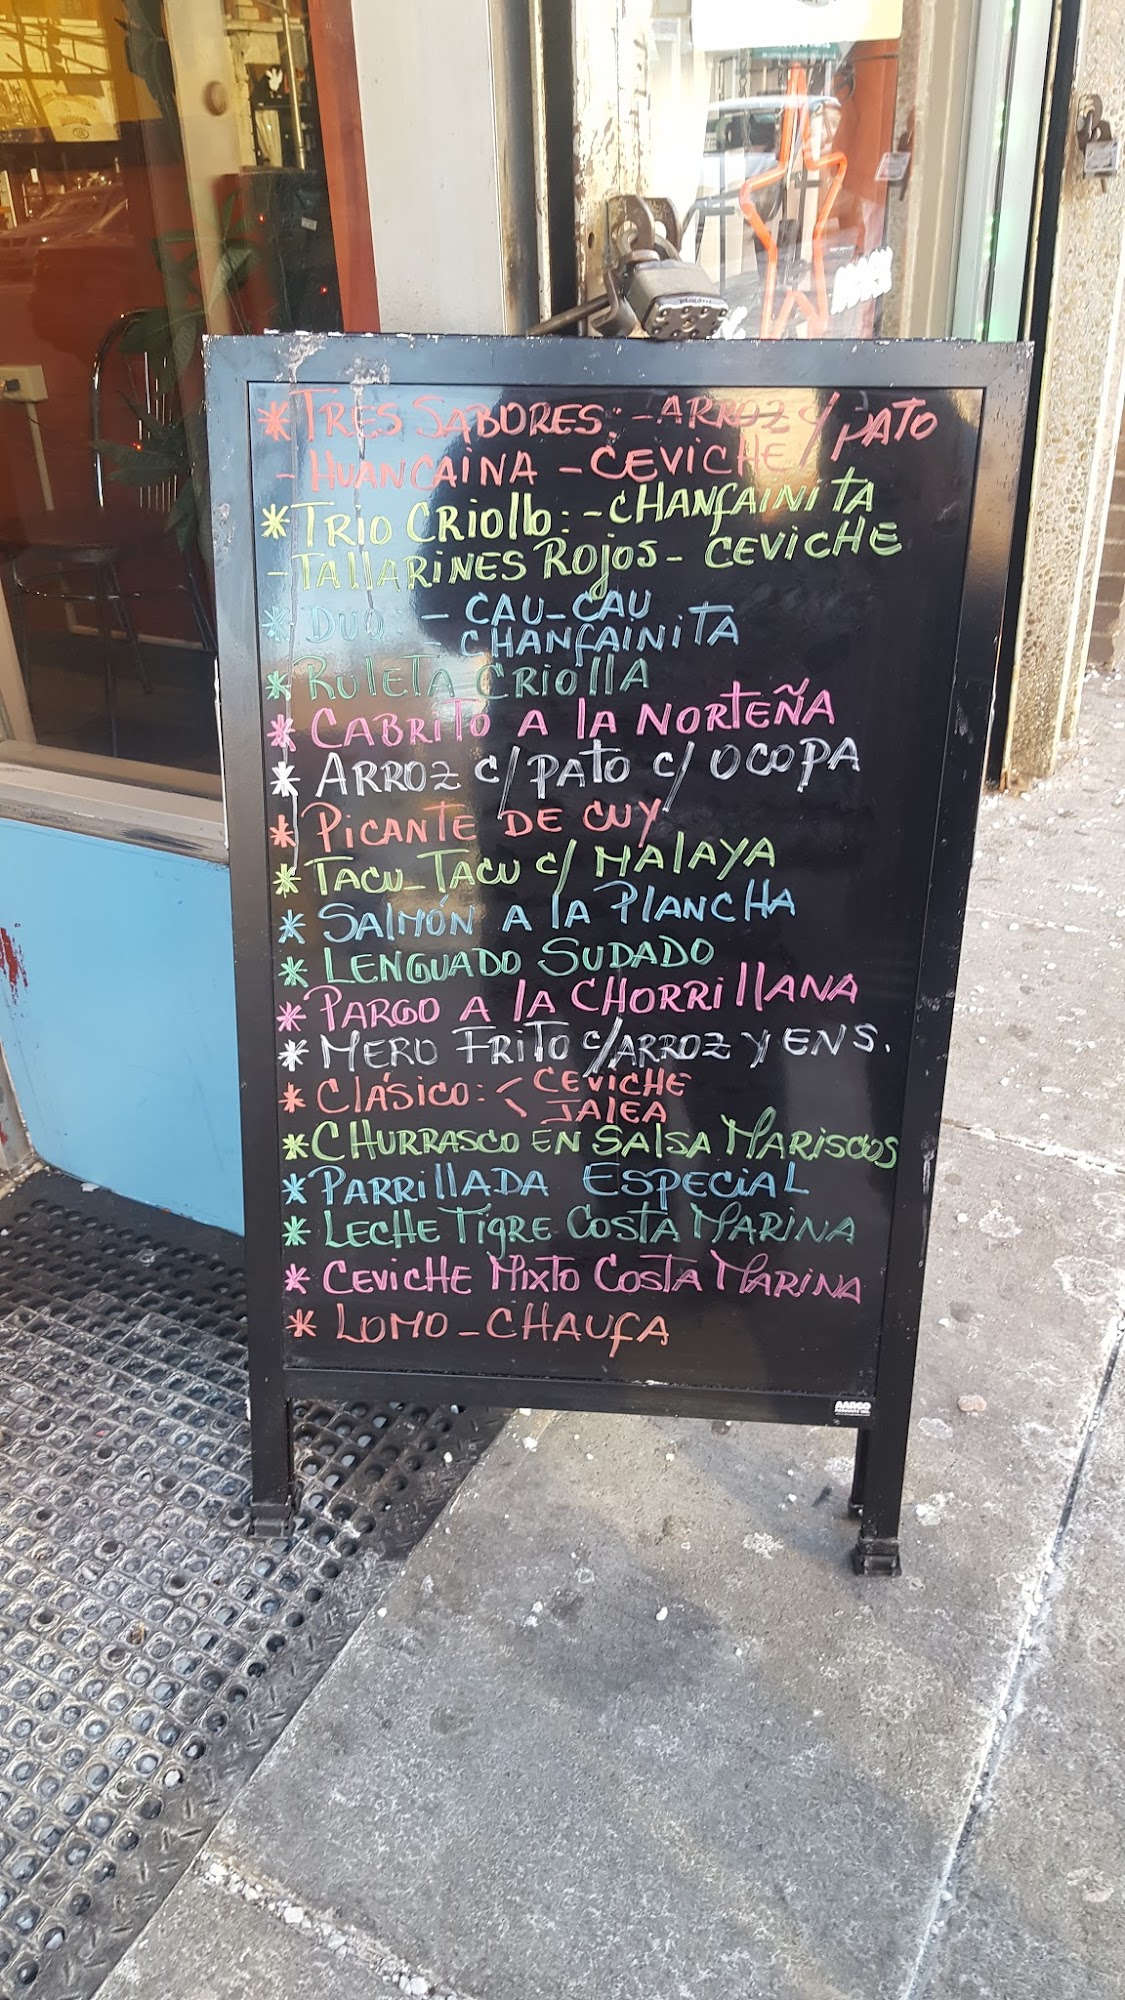 * TRES SABORES: - ARROZ Y PATO
- HUANCAINA - CEVICHE
* TRIO CRIOllO: - CHANFAINITA
- TAllARINES ROJOS - CEVICHE
* DUO: - CAU-CAU
- CHANFAINITA
* RULETA CRIOllA
* CABRITO A lA NORTEÑA
* ARROZ C/PATO C/ OCOPA
* PICANTE DE CUY
* TACU-TACU C/ MALAYA
* SALMÓN A lA PlANCHA
* LENGUADO SUDADO
* PARGO A lA CHORRIllANA
* MERO FRITO C/ARROZ Y ENS.
* CLÁSICO: < CEVICHE
JALEA
* CHURRASCO EN SALSA MARISCOS
* PARRIllADA ESPECIAL
* LECHE TIGRE COSTA MARINA
* CEVICHE MIXTO COSTA MARINA
* LOMO - CHAUFA
AARCO